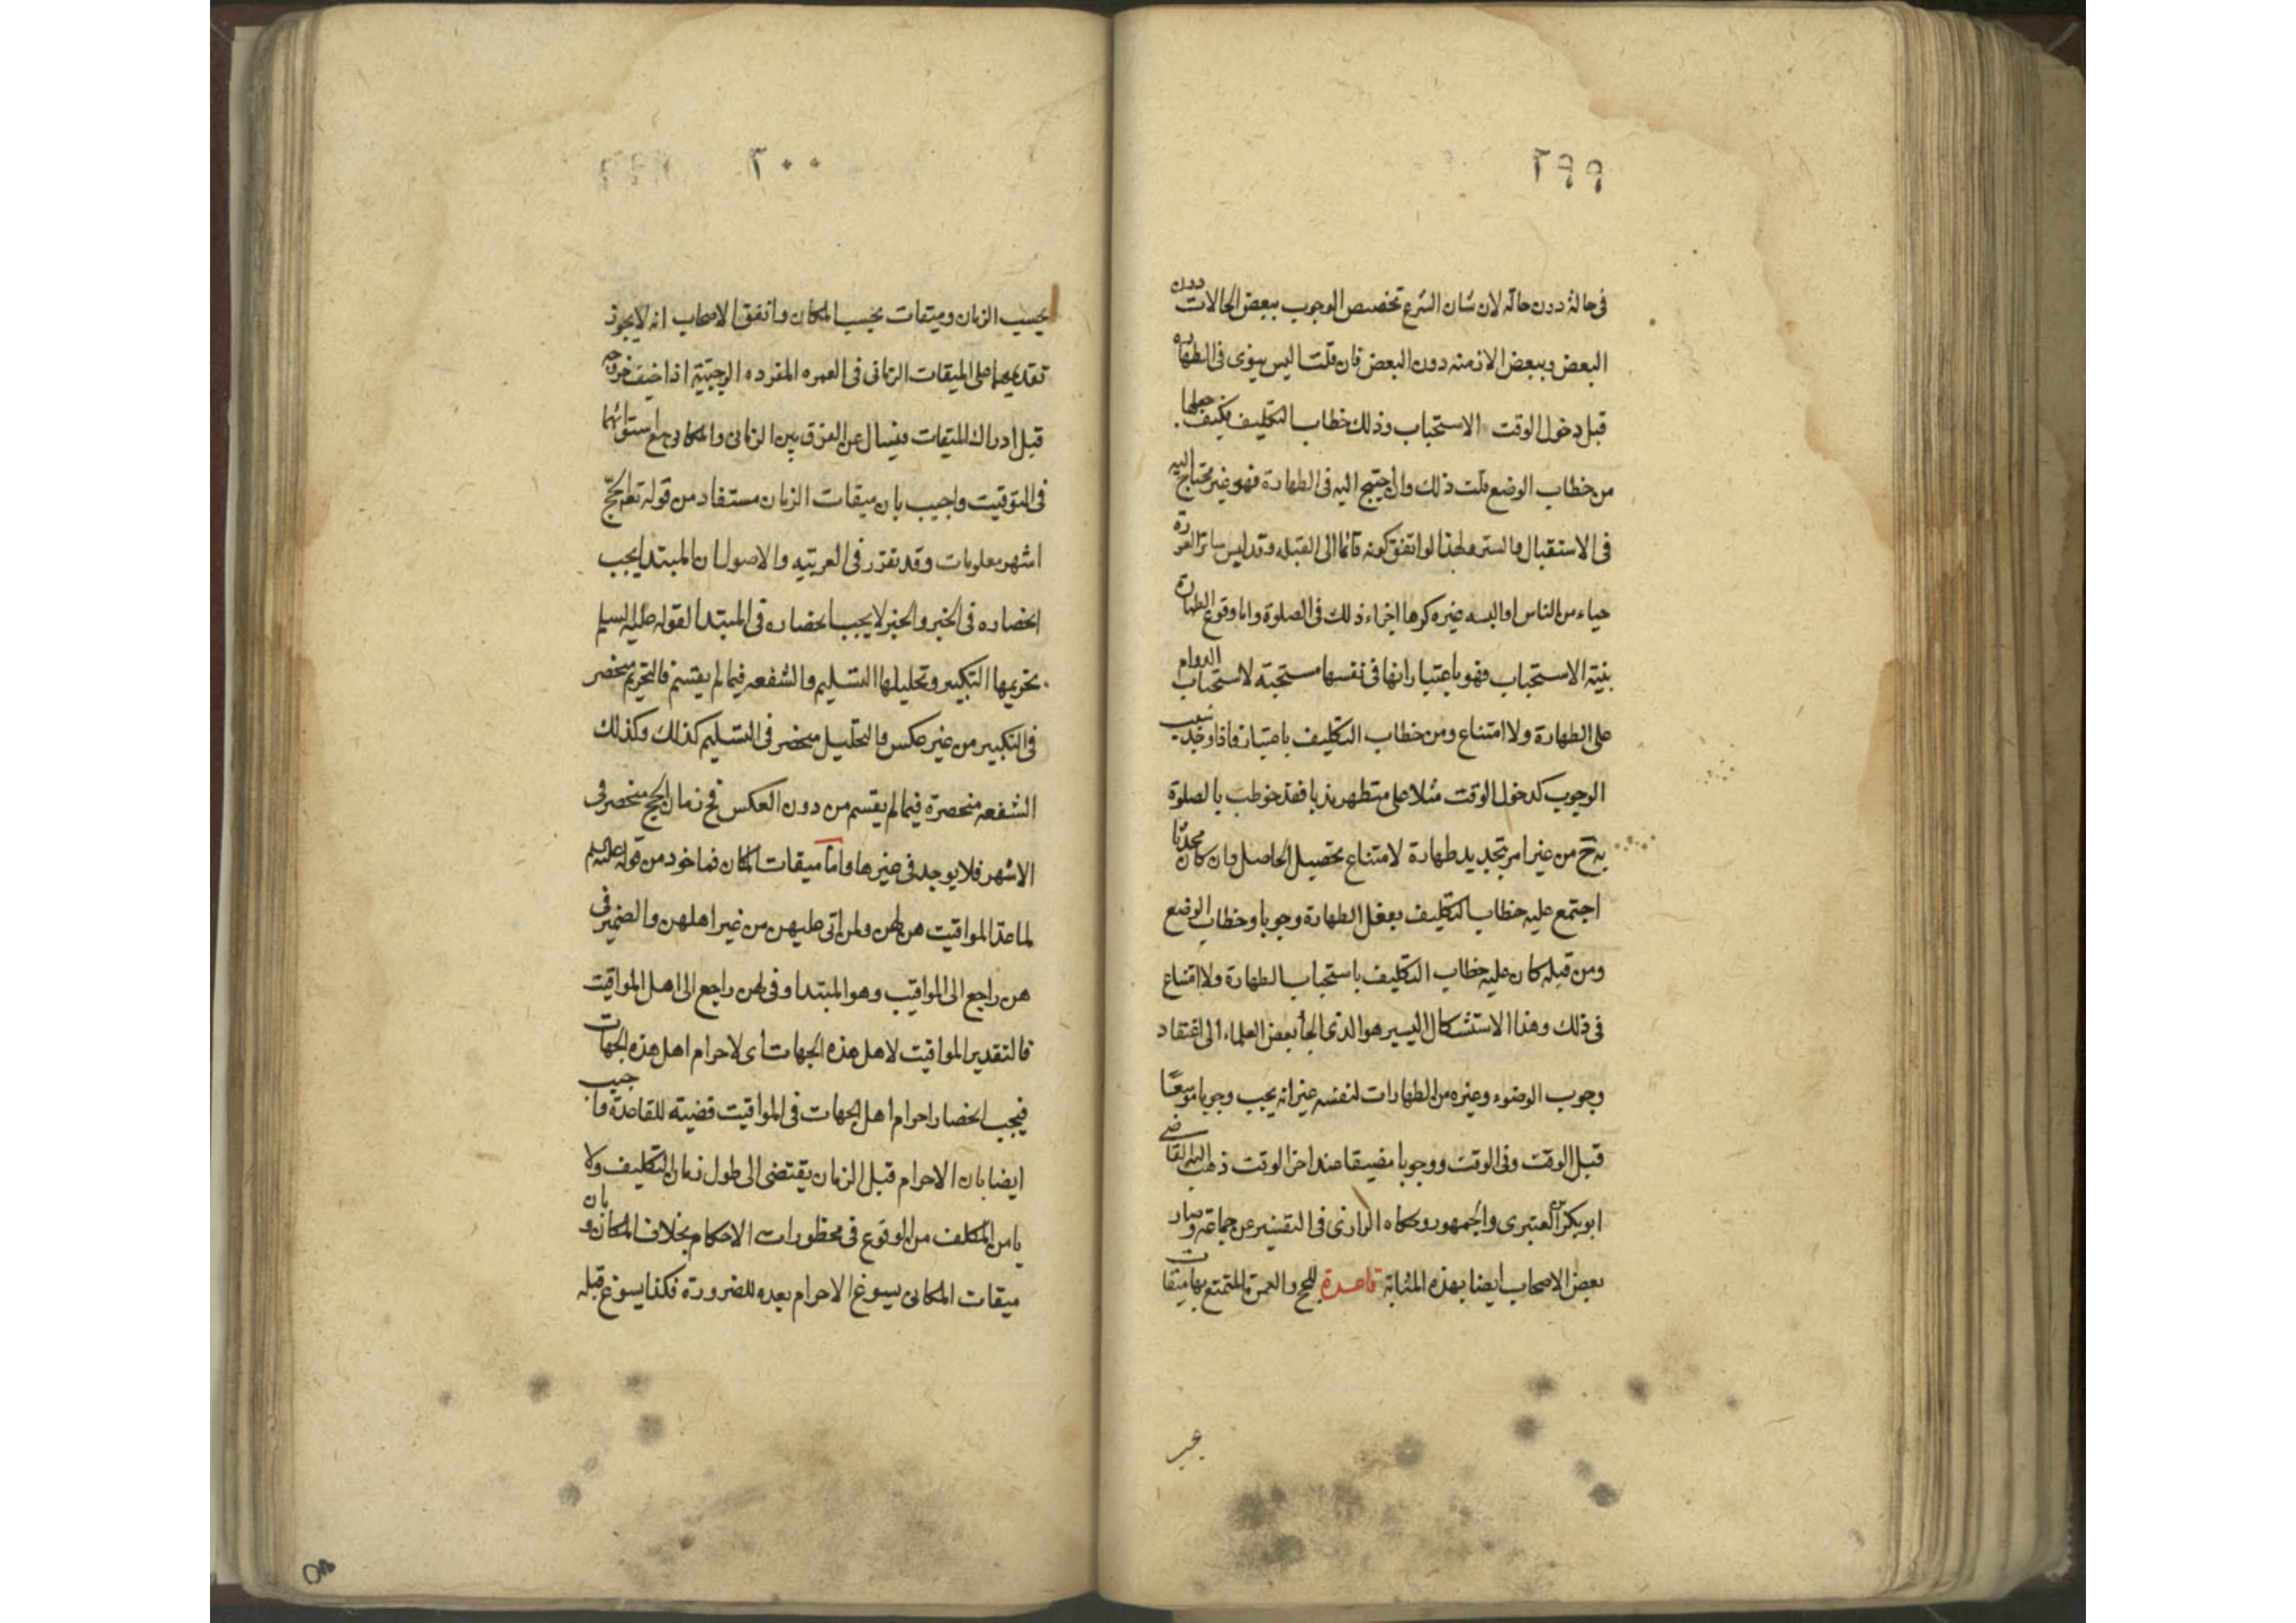 ٢٩٩
فى حالة دون حالة لان شان الشرع تخصيص الوجوب ببعض الحالات دون
البعض وببعض الازمنه دون البعض فان قلت اليس ينوى فى الطهاره
قبل دخول الوقت الاستحباب وذلك خطاب التكليف فكيف جعلها
من خطاب الوضع قلت ذلك وان احتيج اليه فى الطهارة فهو غير محتاج اليه
فى الاستقبال والستر ولهذا لو اتفق كونه قائما الى القبله وقد لبس ساتر العورة
حياء من الناس او البسه غيره كرها اجزاء ذلك فى الصلوة واما وقوع الطهارة
بنية الاستحباب فهو باعتبار انها فى نفسها مستحبة لاستحباب الدوام
على الطهارة ولا امتناع ومن خطاب التكليف باعتبار فاذا وجد سبب
الوجوب كدخول الوقت مثلا على متطهر ندبا فقد خوطب بالصلوة
به ح من غير امر بتجديد طهارة لامتناع تحصيل الحاصل وان كان محدثا
اجتمع عليه خطاب التكليف بفعل الطهارة وجوبا وخطاب الوضع
ومن قبله كان عليه خطاب التكليف باستحباب الطهارة ولا امتناع
فى ذلك وهذا الاستشكال اليسير هو الذى الجأ بعض العلماء الى اعتقاد
وجوب الوضوء وغيره من الطهارات لنفسه غير انه يجب وجوبا موسعا
قبل الوقت وفى الوقت ووجوبا مضيقا عند اخر الوقت ذهب اليه القاضى
ابو بكر العنبرى والجمهور وحكاه الرازى فى التفسير عن جماعة وصار
بعض الاصحاب ايضا بهذه المثابة قاعدة للحج والعمرة المتمتع بها ميقات
٣٠٠
بحسب الزمان وميقات بحسب المكان واتفق الاصحاب انه لا يجوز
تقديمهما على الميقات الزمانى فى العمره المفرده الرجبية اذا خيف خروجه
قبل ادراك الميقات فيسال عن الفرق بين الزمانى والمكانى مع استوائهما
فى التوقيت واجيب بان ميقات الزمان مستفاد من قوله تعالى الحج
اشهر معلومات وقد تقرر فى العربيه والاصول ان المبتدا يجب
انحصاره فى الخبر والخبر لا يجب انحصاره فى المبتدا لقوله عليه السلم
تحريمها التكبير وتحليلها التسليم والشفعه فيما لم يقسم فالتحريم منحصر
فى التكبير من غير عكس والتحليل منحصر فى التسليم كذلك وكذلك
الشفعه منحصرة فيما لم يقسم من دون العكس فح زمان الحج منحصر فى
الاشهر فلا يوجد فى غيرها واما ميقات المكان فماخود من قوله عليه السلم
لما عد المواقيت هن لهن ولمن اتى عليهن من غير اهلهن والضمير فى
هن راجع الى المواقيت وهو المبتدا وفى لهن راجع الى اهل المواقيت
فالتقدير المواقيت لاهل هذه الجهات اى لاحرام اهل هذه الجهات
فيجب انحصار احرام اهل الجهات فى المواقيت قضية للقاعدة واجيب
ايضا بان الاحرام قبل الزمان يقتضى الى طول زمان التكليف ولا
يامن المكلف من الوقوع فى محظورات الاحكام بخلاف المكان وبان
ميقات المكانى يسوغ الاحرام بعده للضرورة فكذا يسوغ قبله